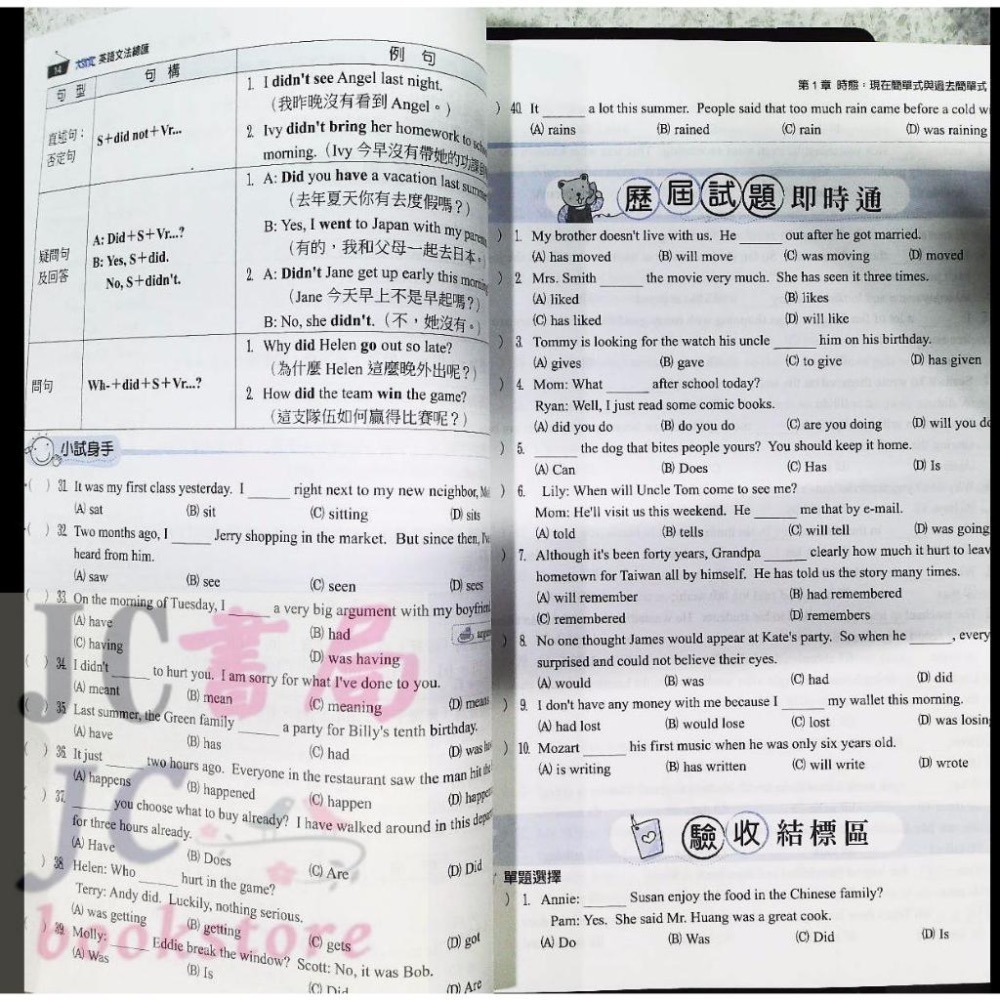 14 大滿貫 英語文法總匯
句型 句構 例句
直述句：
否定句
S＋did not＋Vr...
1. I didn't see Angel last night.
（我昨晚沒有看到 Angel。）
2. Ivy didn't bring her homework to
morning.（Ivy 今早沒有帶她的功課
疑問句
及回答
A: Did＋S＋Vr...?
B: Yes, S＋did.
No, S＋didn't.
1. A: Did you have a vacation last
（去年夏天你有去度假嗎？）
B: Yes, I went to Japan with my
（有的，我和父母一起去日本。
2. A: Didn't Jane get up early this
（Jane 今天早上不是早起嗎？）
B: No, she didn't.（不，她沒有。）
問句
Wh-＋did＋S＋Vr...?
1. Why did Helen go out so late?
（為什麼 Helen 這麼晚外出呢？）
2. How did the team win the game?
（這支隊伍如何贏得比賽呢？）
小試身手
( ) 31. It was my first class yesterday. I ______ right next to my new neighbor,
(A) sat (B) sit (C) sitting (D) sits
( ) 32. Two months ago, I ______ Jerry shopping in the market. But since then,
heard from him.
(A) saw (B) see (C) seen (D) sees
( ) 33. On the morning of Tuesday, I ______ a very big argument with my
(A) have (B) had
(C) having (D) was having
( ) 34. I didn't ______ to hurt you. I am sorry for what I've done to you.
(A) meant (B) mean (C) meaning (D) means
( ) 35. Last summer, the Green family ______ a party for Billy's tenth birthday.
(A) have (B) has (C) had (D) was
( ) 36. It just ______ two hours ago. Everyone in the restaurant saw the man hit
(A) happens (B) happened (C) happen (D)
( ) 37. ______ you choose what to buy already? I have walked around in this
for three hours already.
(A) Have (B) Does (C) Are (D) Did
( ) 38. Helen: Who ______ hurt in the game?
Terry: Andy did. Luckily, nothing serious.
(A) was getting (B) getting (C) gets (D) got
( ) 39. Molly: ______ Eddie break the window? Scott: No, it was Bob.
(A) Was (B) Is (C) Did (D) Are
第 1 章 時態：現在簡單式與過去簡單式
) 40. It ______ a lot this summer. People said that too much rain came before a cold
(A) rains (B) rained (C) rain (D) was raining
歷屆試題即時通
) 1. My brother doesn't live with us. He ______ out after he got married.
(A) has moved (B) will move (C) was moving (D) moved
) 2. Mrs. Smith ______ the movie very much. She has seen it three times.
(A) liked (B) likes
(C) has liked (D) will like
) 3. Tommy is looking for the watch his uncle ______ him on his birthday.
(A) gives (B) gave (C) to give (D) has given
) 4. Mom: What ______ after school today?
Ryan: Well, I just read some comic books.
(A) did you do (B) do you do (C) are you doing (D) will you
) 5. ______ the dog that bites people yours? You should keep it home.
(A) Can (B) Does (C) Has (D) Is
) 6. Lily: When will Uncle Tom come to see me?
Mom: He'll visit us this weekend. He ______ me that by e-mail.
(A) told (B) tells (C) will tell (D) was going
) 7. Although it's been forty years, Grandpa ______ clearly how much it hurt to
hometown for Taiwan all by himself. He has told us the story many times.
(A) will remember (B) had remembered
(C) remembered (D) remembers
) 8. No one thought James would appear at Kate's party. So when he ______,
surprised and could not believe their eyes.
(A) would (B) was (C) had (D) did
) 9. I don't have any money with me because I ______ my wallet this morning.
(A) had lost (B) would lose (C) lost (D) was
) 10. Mozart ______ his first music when he was only six years old.
(A) is writing (B) has written (C) will write (D) wrote
驗收結標區
單題選擇
) 1. Annie: ______ Susan enjoy the food in the Chinese family?
Pam: Yes. She said Mr. Huang was a great cook.
(A) Do (B) Was (C) Did (D) Is
JC書局
JC
bookstore